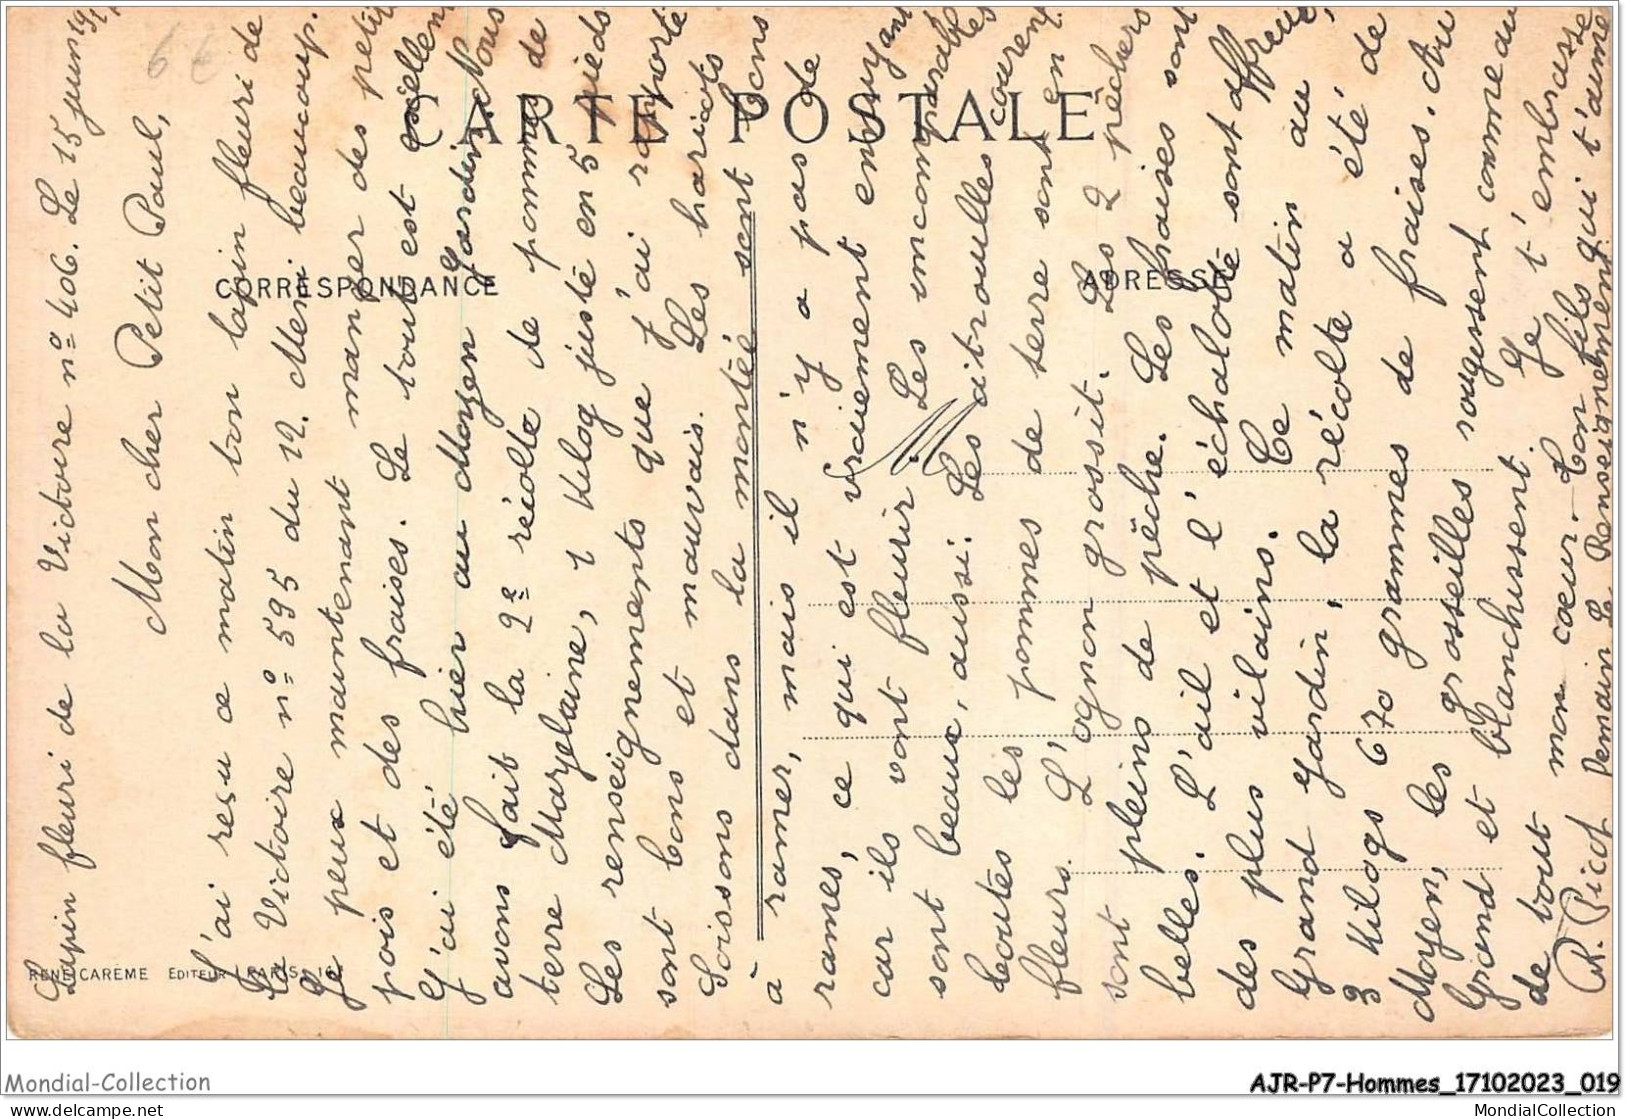 Lapin fleuri de la Victoire nº 406. Le 15 juin 191
Mon cher Petit Paul,
J'ai reçu ce matin ton lapin fleuri de
la Victoire nº 595 du 12. Merci beaucoup.
Je peux maintenant manger des petits
pois et des fraises. Le tout est excellent
J'ai été hier au Moyen Jardin. Nous
avons fait la 2e récolte de pomme de
terre Marjolaine, 1 kilog juste en 5 pieds
Les renseignements que j'ai rapporté
sont bons et mauvais. Les haricots
Soissons dans la montée sont bons
à ramer, mais il n'y a pas de
rames, ce qui est vraiment ennuyant
car ils vont fleurir. Les incomparables
sont beaux, aussi. Les citrouilles courent
toutes les pommes de terre sont en
fleurs. L'ognon grossit. Les 2 pêchers
sont pleins de pêche. Les fraises sont
belles. L'ail et l'échalote sont affreux
des plus vilains. Ce matin au
Grand Jardin, la récolte a été de
3 kilogs 670 grammes de fraises. Au
Moyen, les groseilles rougissent comme au
Grand et blanchissent. Je t'embrasse
de tout mon cœur. Ton fils qui t'aime
R. Picot Demain Le Renseignement
CARTE POSTALE
CORRESPONDANCE
ADRESSE
RENÉ CARÊME EDITEUR PARIS
6 €
Mondial-Collection
AJR-P7-Hommes_17102023_019
delcampe.net
MondialCollection